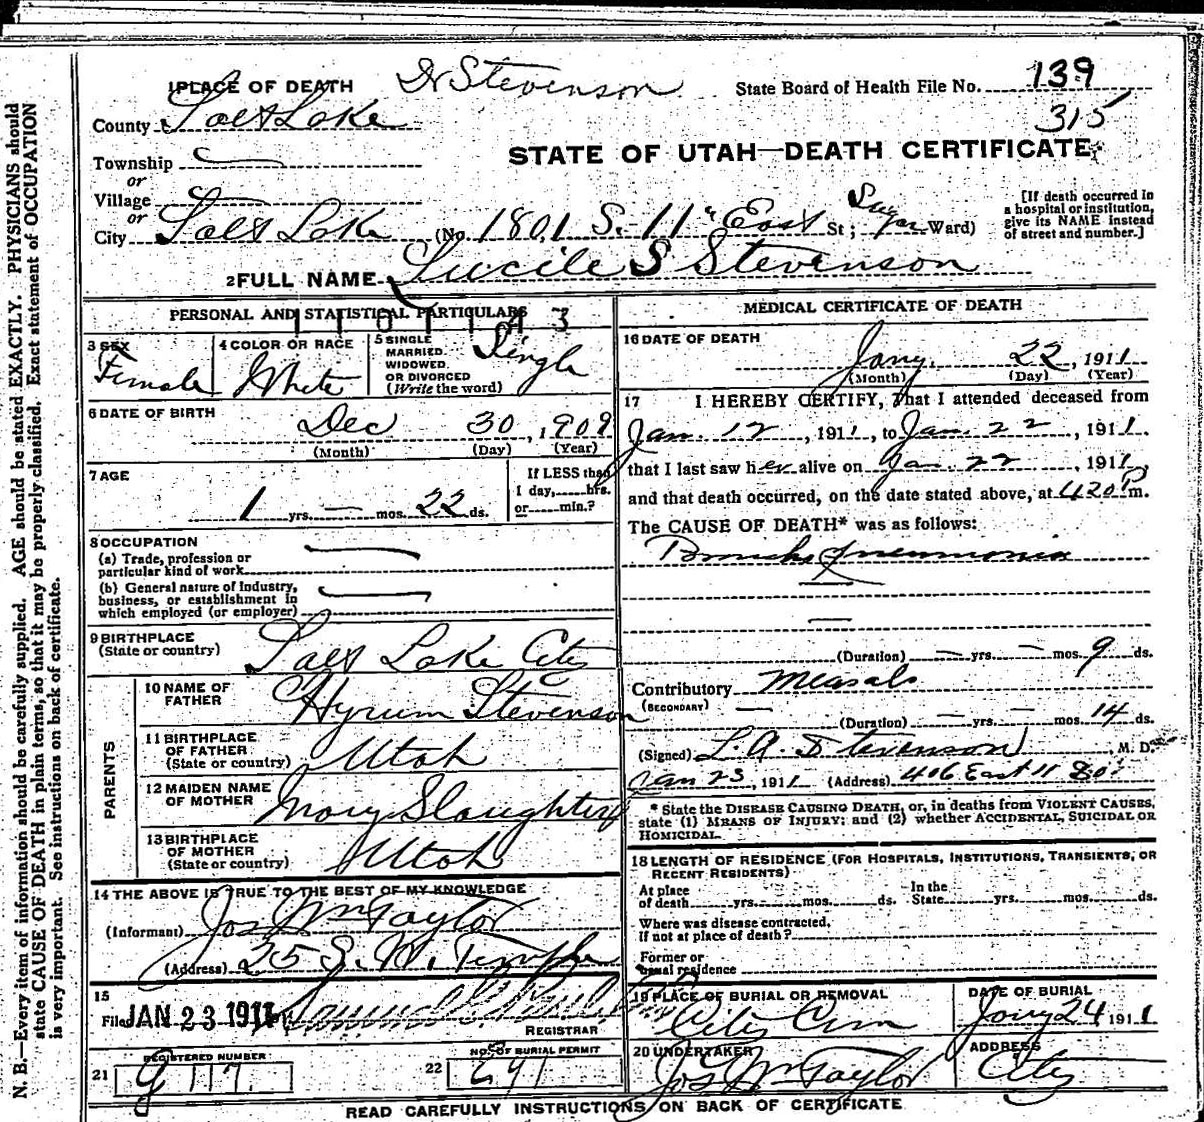 1 PLACE OF DEATH
Dr Stevenson
State Board of Health File No. 139
315
County Salt Lake
STATE OF UTAH—DEATH CERTIFICATE
Township
or
Village
or
City Salt Lake (No. 1801 S. 11" East St; Sugar Ward)
Sugar
[If death occurred in
a hospital or institution,
give its NAME instead
of street and number.]
2 FULL NAME Lucile S Stevenson
PERSONAL AND STATISTICAL PARTICULARS
3 SEX
Female
4 COLOR OR RACE
White
5 SINGLE
MARRIED.
WIDOWED.
OR DIVORCED
(Write the word)
Single
6 DATE OF BIRTH
Dec 30, 1909
(Month) (Day) (Year)
7 AGE
1 yrs. — mos. 22 ds.
If LESS than
1 day, hrs.
or min.?
8 OCCUPATION
(a) Trade, profession or
particular kind of work
(b) General nature of Industry,
business, or establishment in
which employed (or employer)
9 BIRTHPLACE
(State or country)
Salt Lake City
PARENTS
10 NAME OF
FATHER
Hyrum Stevenson
11 BIRTHPLACE
OF FATHER
(State or country)
Utah
12 MAIDEN NAME
OF MOTHER
Mary Slaughter
13 BIRTHPLACE
OF MOTHER
(State or country)
Utah
14 THE ABOVE IS TRUE TO THE BEST OF MY KNOWLEDGE
(Informant) Jos Wm Taylor
(Address) 25 S. W. Temple
15
Filed JAN 23 1911
REGISTRAR
21
REGISTERED NUMBER
117
22
NO. OF BURIAL PERMIT
MEDICAL CERTIFICATE OF DEATH
16 DATE OF DEATH
Jany. 22, 1911
(Month) (Day) (Year)
17 I HEREBY CERTIFY, That I attended deceased from
Jan. 12, 1911, to Jan. 22, 1911.
that I last saw her alive on Jan. 22, 1911,
and that death occurred, on the date stated above, at 420 P m.
The CAUSE OF DEATH* was as follows:
Broncho pneumonia
(Duration) — yrs. — mos. 9 ds.
Contributory Measals
(SECONDARY)
(Duration) — yrs. — mos. 14 ds.
(Signed) L. A. Stevenson, M. D.
Jan 23, 1911 (Address) 406 East 11 So.
* State the DISEASE CAUSING DEATH, or, in deaths from VIOLENT CAUSES,
state (1) MEANS OF INJURY; and (2) whether ACCIDENTAL, SUICIDAL OR
HOMICIDAL.
18 LENGTH OF RESIDENCE (FOR HOSPITALS, INSTITUTIONS, TRANSIENTS, OR
RECENT RESIDENTS)
At place
of death yrs. mos. ds.
In the
State yrs. mos. ds.
Where was disease contracted,
if not at place of death?
Former or
usual residence
19 PLACE OF BURIAL OR REMOVAL
City Cem
DATE OF BURIAL
Jany 24 1911
20 UNDERTAKER
Jos Wm Taylor
ADDRESS
City
READ CAREFULLY INSTRUCTIONS ON BACK OF CERTIFICATE
N. B.—Every item of information should be carefully supplied. AGE should be stated EXACTLY. PHYSICIANS should
state CAUSE OF DEATH in plain terms, so that it may be properly classified. Exact statement of OCCUPATION
is very important. See instructions on back of certificate.